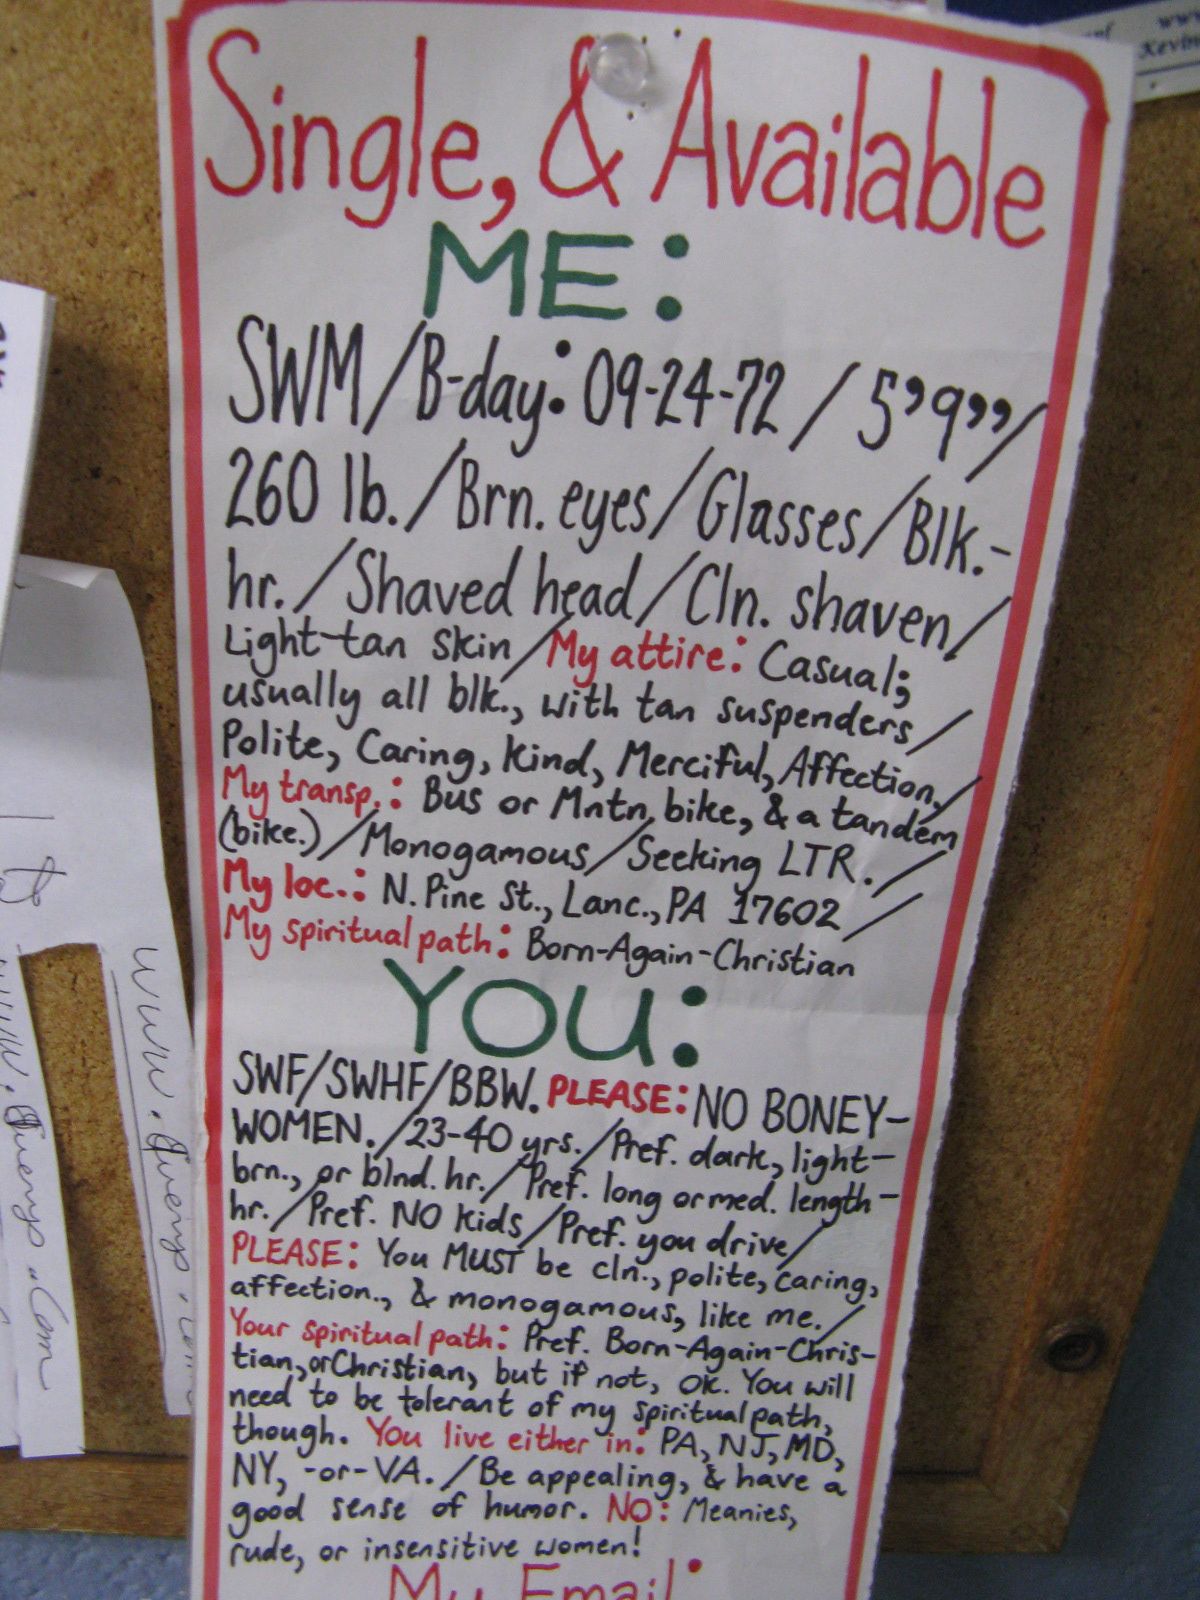 Single, & Available
ME:
SWM/B-day: 09-24-72 / 5'9"/
260 lb./Brn. eyes/Glasses/Blk.-
hr./Shaved head/Cln. shaven/
Light-tan skin/My attire: Casual;
usually all blk., with tan suspenders/
Polite, Caring, Kind, Merciful, Affection./
My transp.: Bus or Mntn. bike, & a tandem
(bike.)/Monogamous/Seeking LTR./
My loc.: N. Pine St., Lanc., PA 17602/
My spiritual path: Born-Again-Christian
YOU:
SWF/SWHF/BBW. PLEASE: NO BONEY-
WOMEN./23-40 yrs./Pref. dark, light-
brn., or blnd. hr./Pref. long or med. length-
hr./Pref. NO kids/Pref. you drive/
PLEASE: You MUST be cln., polite, caring,
affection., & monogamous, like me./
Your spiritual path: Pref. Born-Again-Chris-
tian, or Christian, but if not, OK. You will
need to be tolerant of my spiritual path,
though. You live either in: PA, NJ, MD,
NY, -or- VA./Be appealing, & have a
good sense of humor. NO: Meanies,
rude, or insensitive women!
My Email:
www.
Kevin